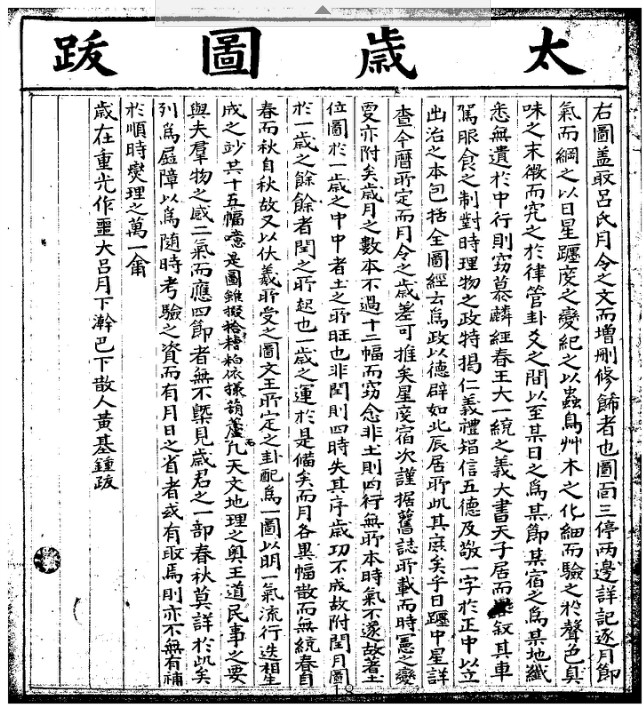 太歲圖跋
右圖盖取呂氏月令之文而增刪修餙者也圖面三停兩邊詳記逐月節
氣而綱之以日星躔度之變紀之以蟲鳥艸木之化細而驗之於聲色臭
味之末微而究之於律管卦爻之間以至某日之爲某節某宿之爲某地纖
悉無遺於中行則窃慕麟經春王大一統之義大書天子居而叙其車
駕服食之制對時理物之政特揭仁義禮智信五德及敬一字於正中以立
出治之本包括全圖經云爲政以德辟如北辰居所此其庶矣乎日躔中星詳
查今曆所定而月令之歲差可推矣星度宿次謹据舊誌所載而時憲之變
更亦附矣歲月之數本不過十二幅而窃念非土則四行無所本時氣不遂故著土
位圖於一歲之中中者土之所旺也非閏則四時失其序歲功不成故附閏月圖
於一歲之餘餘者閏之所起也一歲之運於是備矣而月各異幅散而無統春自
春而秋自秋故又以伏羲所受之圖文王所定之卦配爲一圖以明一氣流行迭相生
成之妙共十五幅噫是圖雖掇拾糟粕依㨾葫蘆而凡天文地理之奧王道民事之要
與夫羣物之感二氣而應四節者無不槩見歲君之一部春秋莫詳於此矣
列爲屛障以爲随時考驗之資而有月日之省者或有取焉則亦不無有補
於順時燮理之萬一侖
歲在重光作噩大呂月下澣巴下散人黃基鍾跋
18